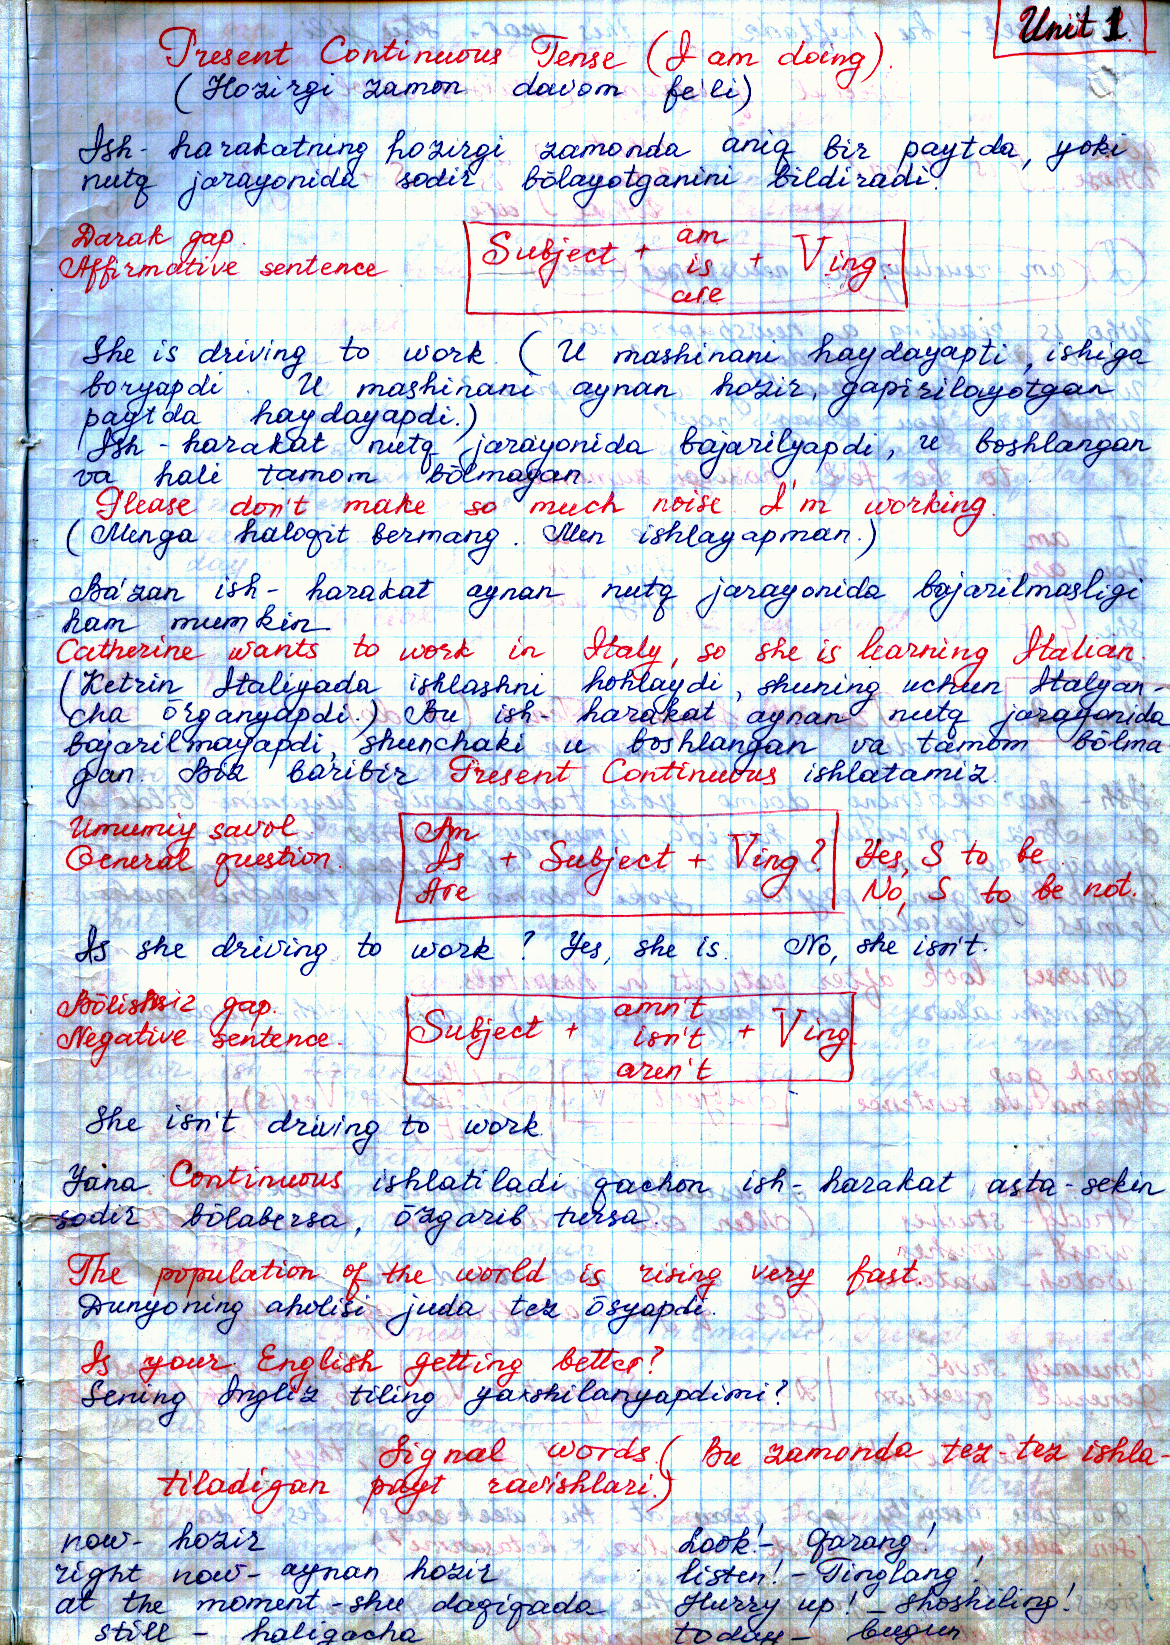 Unit 1.
Present Continuous Tense (I am doing).
(Hozirgi zamon davom fe'li)
Ish-harakatning hozirgi zamonda aniq bir paytda, yoki
nutq jarayonida sodir bōlayotganini bildiradi.
Darak gap.
Affirmative sentence
Subject + am is are + Ving.
She is driving to work. (U mashinani haydayapti, ishiga
boryapdi. U mashinani aynan hozir, gapirilayotgan
paytda haydayapdi.)
Ish-harakat nutq jarayonida bajarilyapdi, u boshlangan
va hali tamom bōlmagan
Please don't make so much noise. I'm working.
(Menga halaqit bermang. Men ishlayapman.)
Ba'zan ish-harakat aynan nutq jarayonida bajarilmasligi
ham mumkin.
Catherine wants to work in Italy, so she is learning Italian.
(Ketrin Italiyada ishlashni hohlaydi, shuning uchun Italyan-
cha ōrganyapdi.) Bu ish-harakat aynan nutq jarayonida
bajarilmayapdi, shunchaki u boshlangan va tamom bōlma
gan. Biz baribir Present Continuous ishlatamiz.
Umumiy savol.
General question.
Am Is Are + Subject + Ving?
Yes, S to be.
No, S to be not.
Is she driving to work? Yes, she is. No, she isn't.
Bōlishsiz gap.
Negative sentence.
Subject + amn't isn't aren't + Ving.
She isn't driving to work.
Yana Continuous ishlatiladi qachon ish-harakat asta-sekin
sodir bōlabersa, ōzgarib tursa.
The population of the world is rising very fast.
Dunyoning aholisi juda tez ōsyapdi.
Is your English getting better?
Sening Ingliz tiling yaxshilanyapdimi?
Signal words. (Bu zamonda tez-tez ishla-
tiladigan payt ravishlari.)
now - hozir
right now - aynan hozir
at the moment - shu daqiqada
still - haligacha
Look! - Qarang!
listen! - Tinglang!
Hurry up! - Shoshiling!
today - bugun